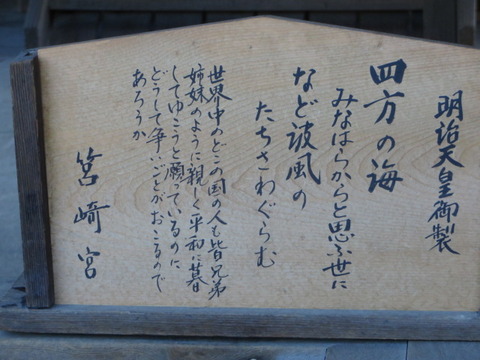 明治天皇御製
四方の海
みなはらからと思ふ世に
など波風の
たちさわぐらむ
世界中のどこの国の人も皆兄弟
姉妹のように親しく平和に暮
してゆこうと願っているのに
どうして争いごとがおこるので
あろうか
筥崎宮